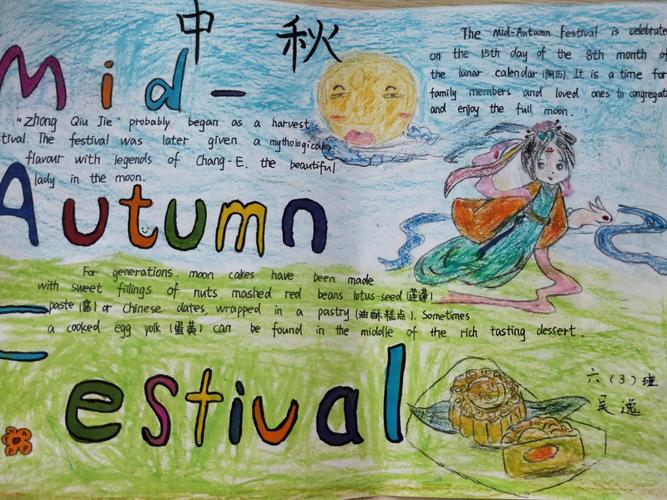 中 秋
Mid-
The Mid-Autumn Festival is celebrate
on the 15th day of the 8th month of
the lunar calendar (阴历). It is a time for
family members and loved ones to congregat
and enjoy the full moon.
"Zhong Qiu Jie" probably began as a harvest
tival. The festival was later given a mythological
flavour with legends of Chang-E, the beautiful
lady in the moon.
Autumn
For generations, moon cakes have been made
with sweet fillings of nuts, mashed red beans, lotus-seed (莲蓬)
paste (酱) or Chinese dates, wrapped in a pastry (油酥糕点). Sometimes
a cooked egg yolk (蛋黄) can be found in the middle of the rich tasting dessert.
Festival
六(3)班
吴逸